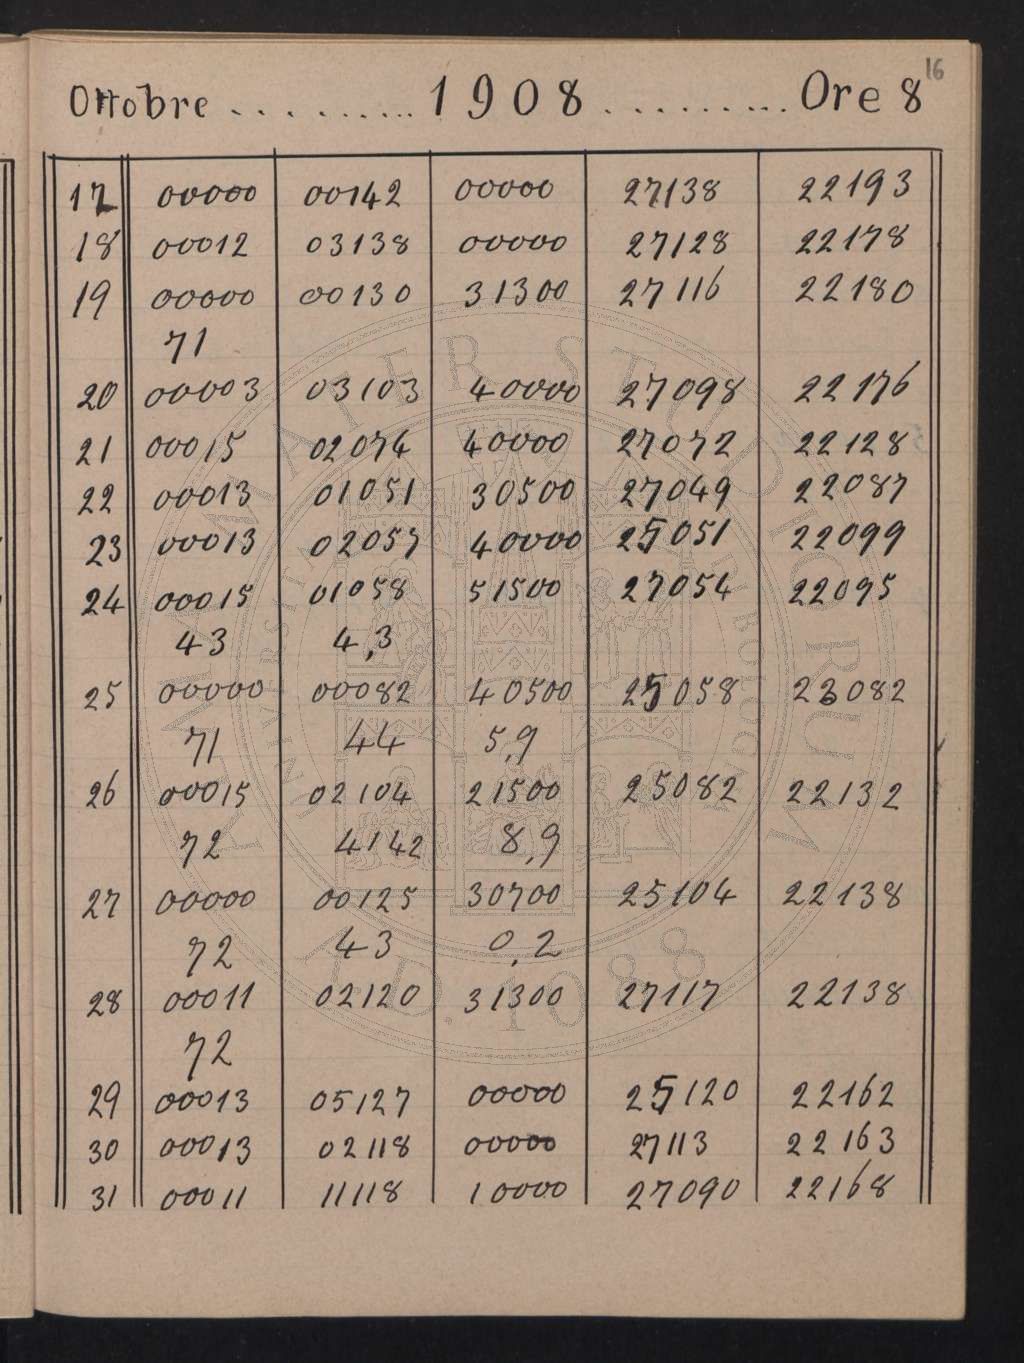 16
Ottobre .......... 1908 .......... Ore 8
17 00000 00142 00000 27138 22193
18 00012 03138 00000 27128 22178
19 00000 00130 31300 27116 22180
71
20 00003 03103 40000 27098 22176
21 00015 02074 40000 27072 22128
22 00013 01051 30500 27049 22087
23 00013 02057 40000 25051 22099
24 00015 01058 51500 27054 22095
43 4,3
25 00000 00082 40500 25058 22082
71 44 5,9
26 00015 02104 21500 25082 22132
72 4142 8,9
27 00000 00125 30700 25104 22138
72 43 0,2
28 00011 02120 31300 27117 22138
72
29 00013 05127 00000 25120 22162
30 00013 02118 00000 27113 22163
31 00011 11118 10000 27090 22168
ALMA MATER STUDIORUM
A.D. 1088